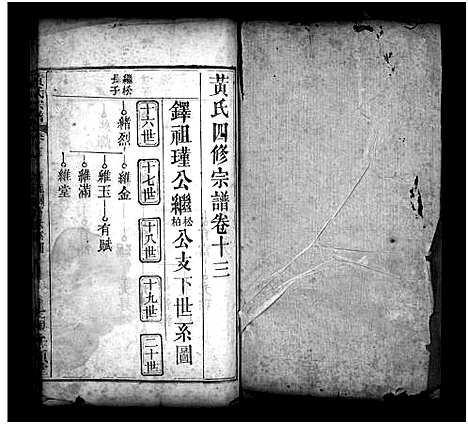 黃氏四修宗譜卷十三
鐸祖瑾公繼松柏公支下世系圖
十六世 十七世 十八世 十九世 二十世
繼松長子
緒烈 維金
維玉 有賦
維滿
維堂